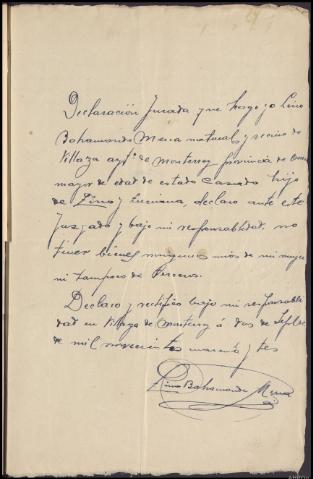 Declaración Jurada que hago yo Lino
Bahamonde Mena natural y vecino de
Villaza aytº de Monterrey provincia de
mayor de edad de estado casado hijo
de Lino y Luciana, declaro ante este
Juzgado y bajo mi responsabilidad, no
tener bienes ningunos unos de mi mujer
ni tampoco de terceros.
Declaro y rectifico bajo mi responsabili
dad en Villaza de Monterrey á dos de
de mil novecientos cuarenta y tres
Lino Bahamonde Mena